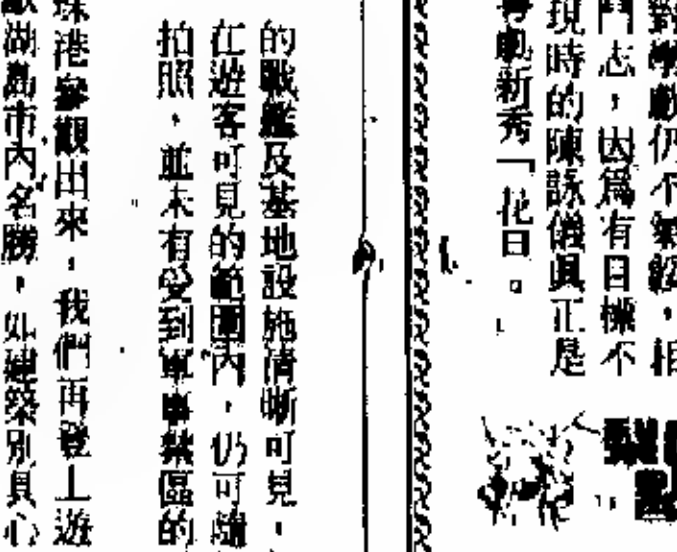 志，因為有目標不
現時的陳詠儀真正是
粵劇新秀「花旦。」
的戰艦及基地設施清晰可見，
在遊客可見的範圍內，仍可隨
拍照，並未有受到軍事禁區的
珠港參觀出來，我們再登上遊
湖島市內名勝，如建築別具心